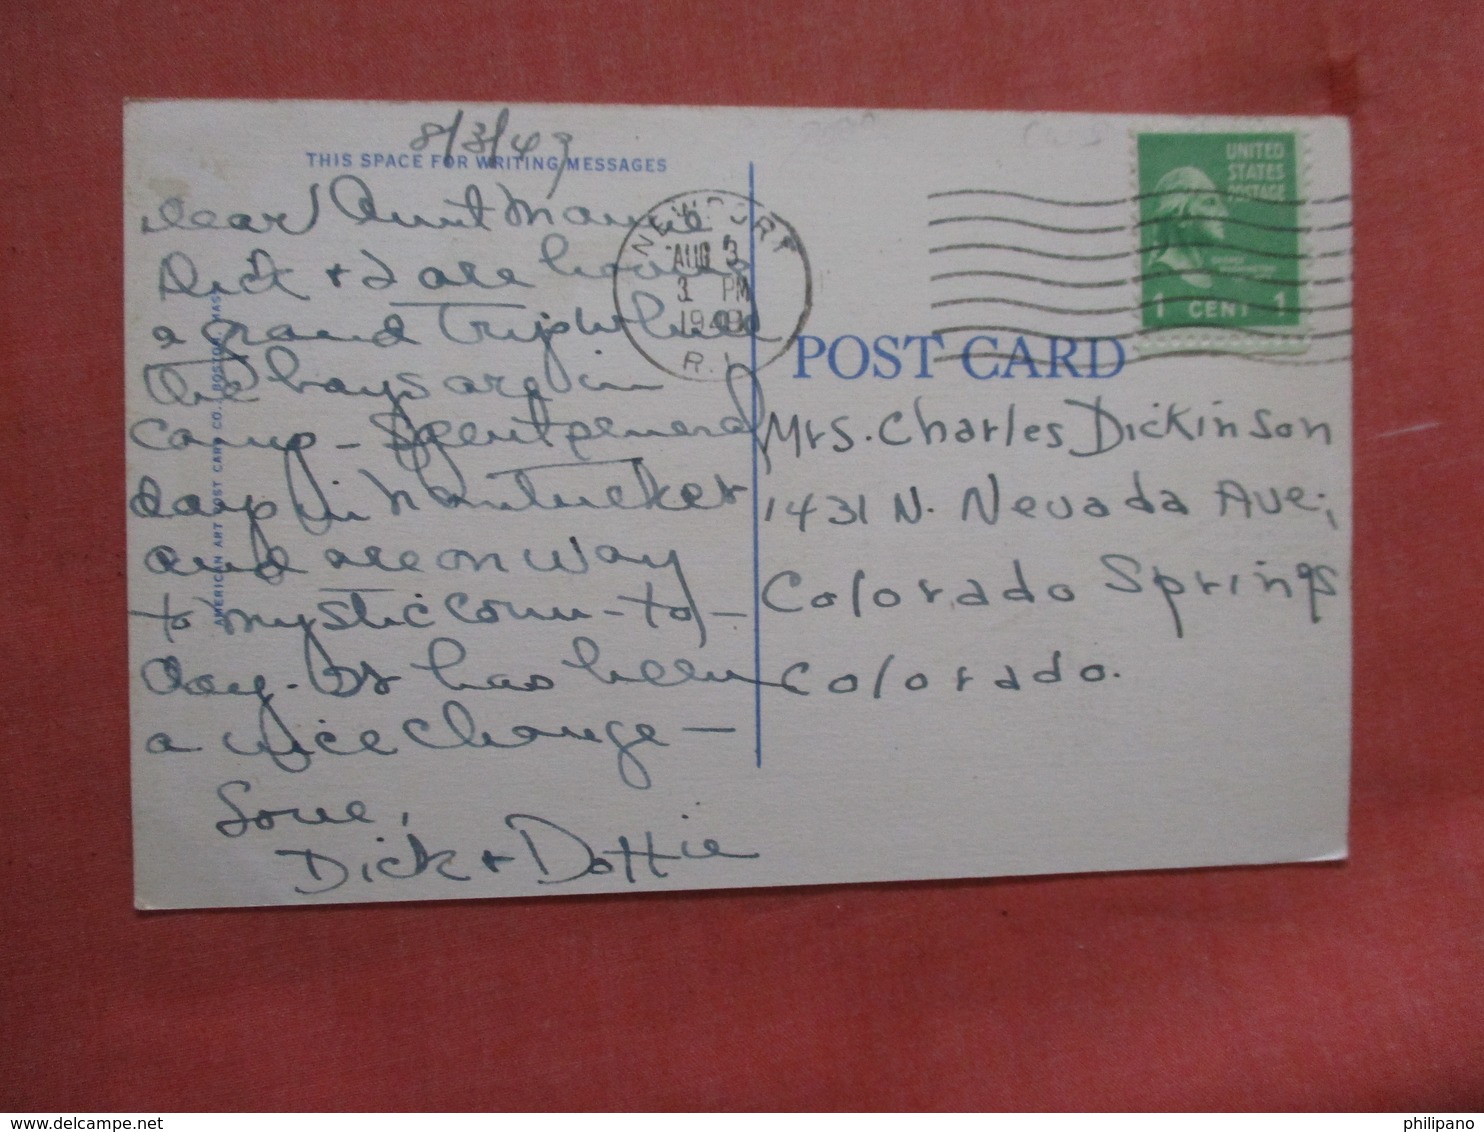 8/3/49
THIS SPACE FOR WRITING MESSAGES
Dear Aunt Mame
Dick + I are having
a grand trip while
the boys are in
camp - Spent several
days in Nantucket
and are on way
to Mystic Conn - to-
day. It has been
a nice change -
Love,
Dick + Dottie
AMERICAN ART POST CARD CO., BOSTON, MASS
NEWPORT
AUG 3
3 PM
1949
R.I.
UNITED
STATES
POSTAGE
1 CENT 1
POST CARD
Mrs. Charles Dickinson
1431 N. Nevada Ave;
Colorado Springs
Colorado.
delcampe.net
philipano